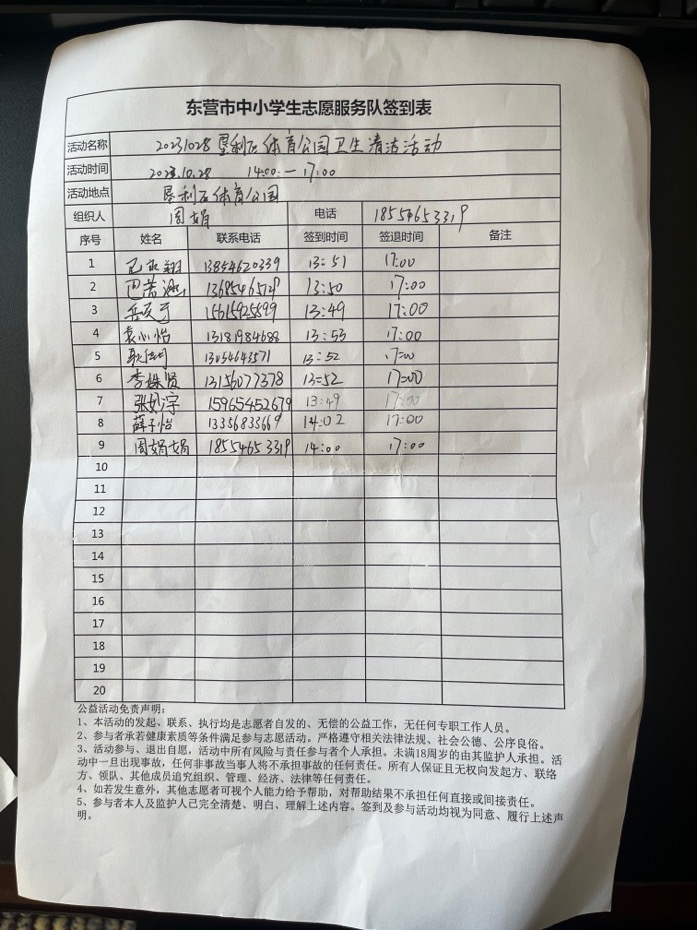 东营市中小学生志愿服务队签到表
活动名称 20231028垦利区体育公园卫生清洁活动
活动时间 2023.10.28 14:00.—17:00
活动地点 垦利区体育公园
组织人 周娟 电话 18554653319
序号 姓名 联系电话 签到时间 签退时间 备注
1 13854620339 13:51 17:00
2 13:50 17:00
3 15615925899 13:49 17:00
4 袁小怡 13181984688 13:53 17:00
5 13054643571 13:52 17:00
6 李姝贤 13156077378 13:52 17:00
7 张妙宇 15965452679 13:49 17:00
8 薛子怡 13356833669 14:02 17:00
9 周娟娟 18554653319 14:00 17:00
10
11
12
13
14
15
16
17
18
19
20
公益活动免责声明:
1、本活动的发起、联系、执行均是志愿者自发的、无偿的公益工作，无任何专职工作人员。
2、参与者承若健康素质等条件满足参与志愿活动。严格遵守相关法律法规、社会公德、公序良俗。
3、活动参与、退出自愿，活动中所有风险与责任参与者个人承担。未满18周岁的由其监护人承担。活
动中一旦出现事故，任何非事故当事人将不承担事故的任何责任。所有人保证且无权向发起方、联络
方、领队、其他成员追究组织、管理、经济、法律等任何责任。
4、如若发生意外，其他志愿者可视个人能力给予帮助，对帮助结果不承担任何直接或间接责任。
5、参与者本人及监护人已完全清楚、明白、理解上述内容。签到及参与活动均视为同意、履行上述声
明。